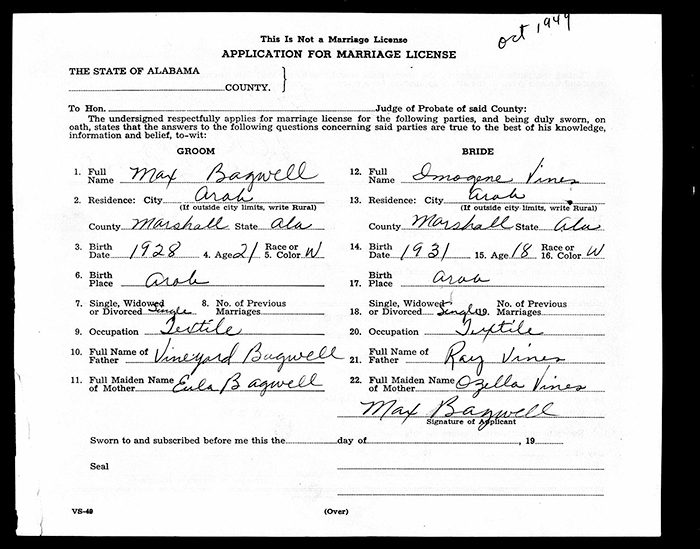 Oct 1949
This Is Not a Marriage License
APPLICATION FOR MARRIAGE LICENSE
THE STATE OF ALABAMA
COUNTY.
To Hon. Judge of Probate of said County:
The undersigned respectfully applies for marriage license for the following parties, and being duly sworn, on
oath, states that the answers to the following questions concerning said parties are true to the best of his knowledge,
information and belief, to-wit:
GROOM
1. Full Name Max Bagwell
2. Residence: City Arab
(If outside city limits, write Rural)
County Marshall State Ala
3. Birth Date 1928 4. Age 21 5. Race or Color W
6. Birth Place Arab
7. Single, Widowed or Divorced Single 8. No. of Previous Marriages
9. Occupation Textile
10. Full Name of Father Vineyard Bagwell
11. Full Maiden Name of Mother Eula Bagwell
BRIDE
12. Full Name Imogene Vines
13. Residence: City Arab
(If outside city limits, write Rural)
County Marshall State Ala
14. Birth Date 1931 15. Age 18 16. Race or Color W
17. Birth Place Arab
18. Single, Widowed or Divorced Single 19. No. of Previous Marriages
20. Occupation Textile
21. Full Name of Father Ray Vines
22. Full Maiden Name of Mother Ozella Vines
Max Bagwell
Signature of Applicant
Sworn to and subscribed before me this the day of , 19
Seal
VS-40 (Over)